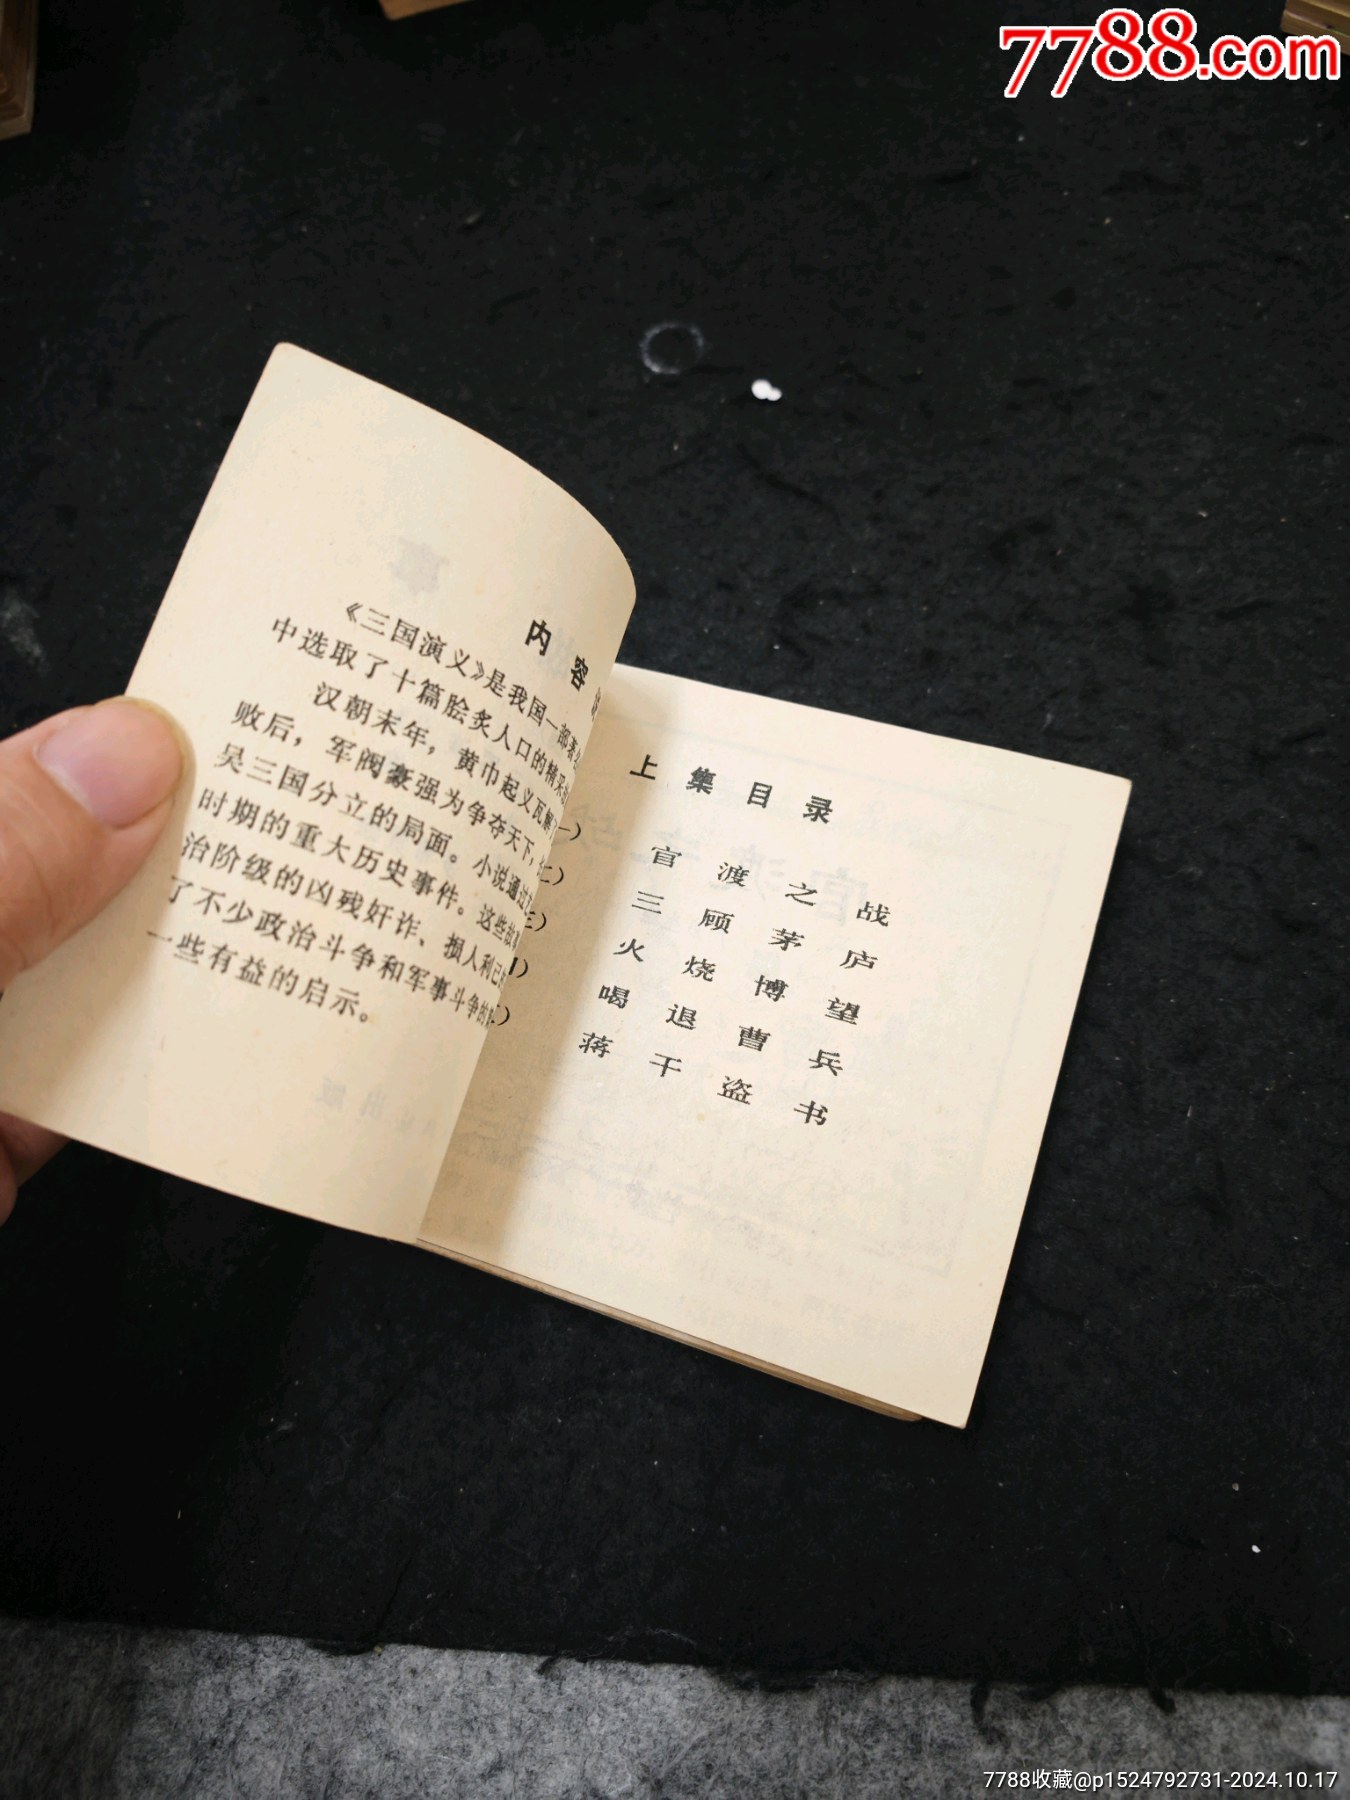 7788.com
内容
《三国演义》是我国一部著
中选取了十篇脍炙人口的精采
汉朝末年，黄巾起义瓦解
败后，军阀豪强为争夺天下，
吴三国分立的局面。小说通过
时期的重大历史事件。这些故
治阶级的凶残奸诈、损人利己
了不少政治斗争和军事斗争的
一些有益的启示。
上集目录
一）官渡之战
二）三顾茅庐
三）火烧博望
）喝退曹兵
）蒋干盗书
7788收藏@p1524792731-2024.10.17